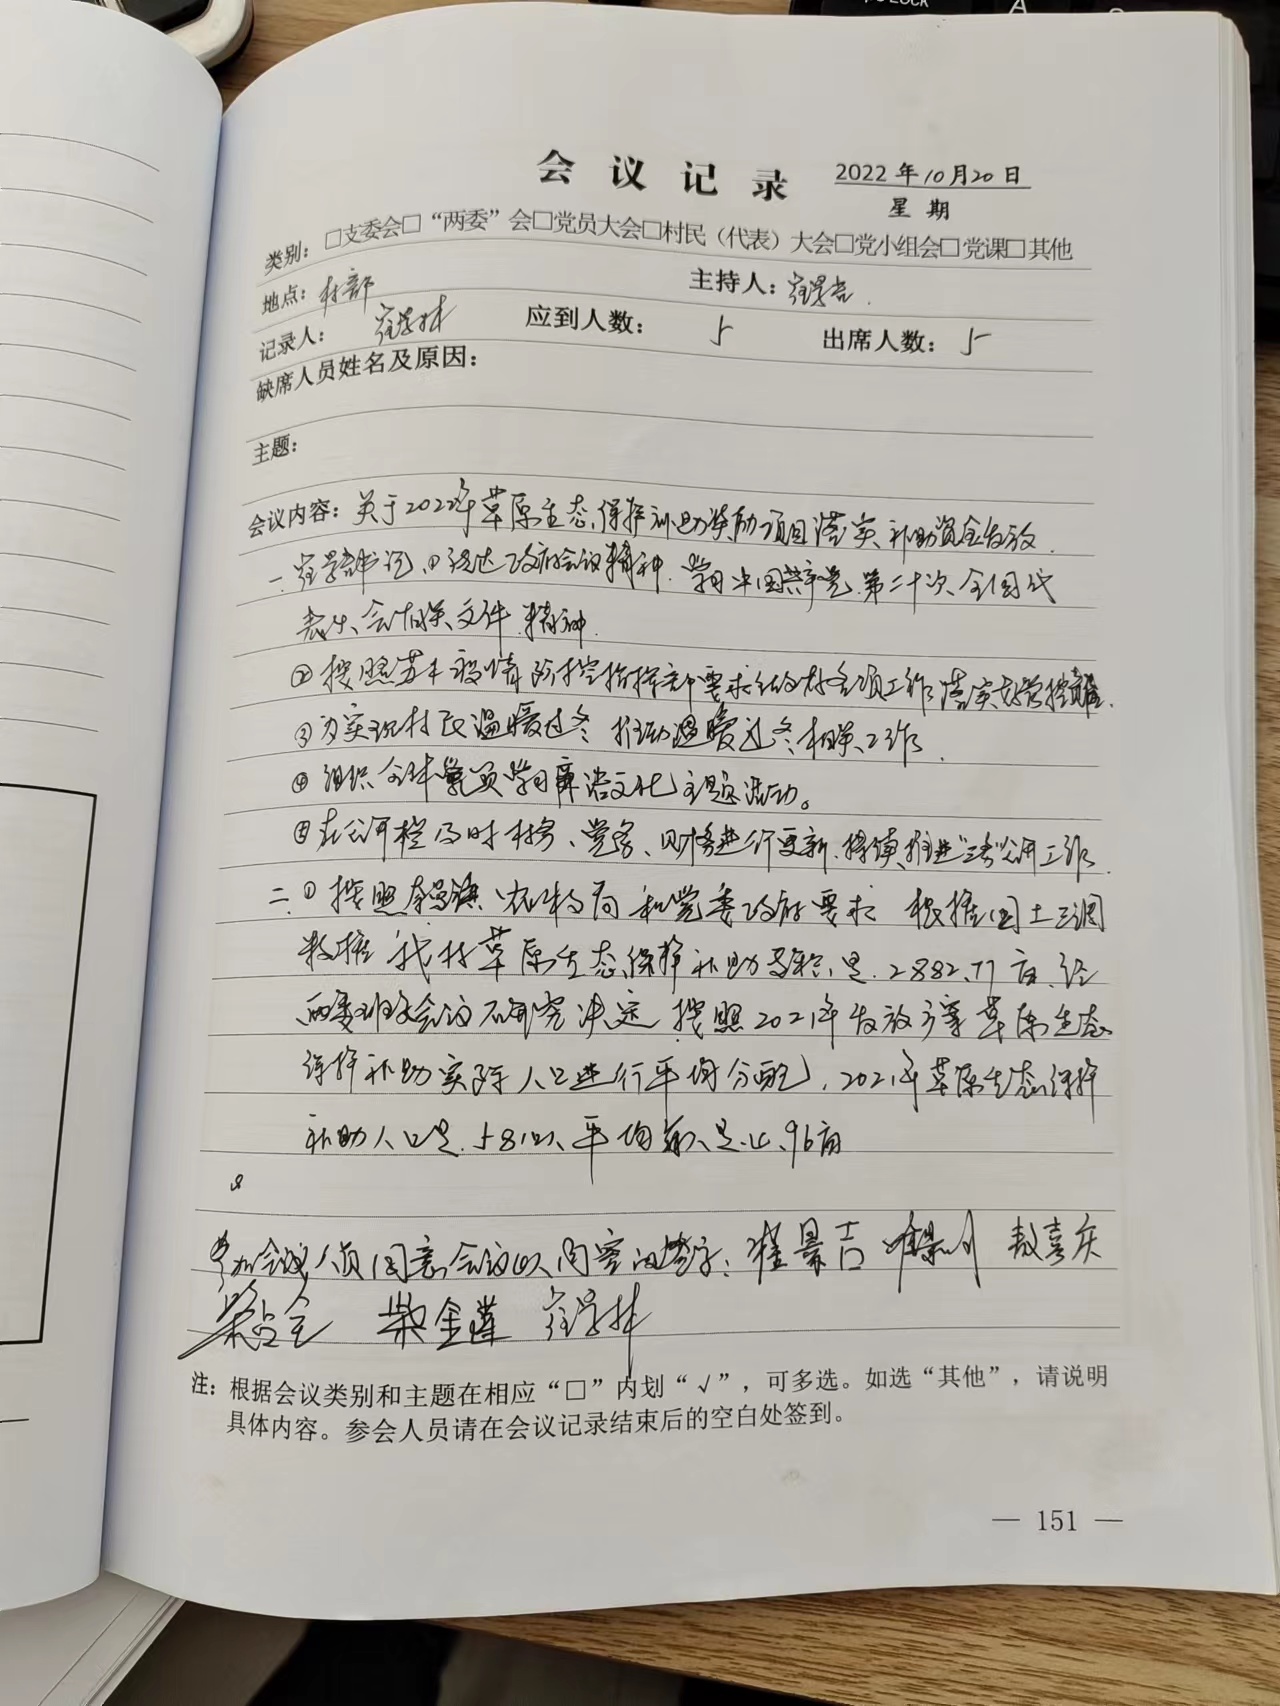 会议记录 2022年10月20日
星期
类别：□支委会□“两委”会□党员大会□村民（代表）大会□党小组会□党课□其他
地点：村部 主持人：崔景吉.
记录人：崔学林 应到人数：5 出席人数：5
缺席人员姓名及原因：
主题：
会议内容：关于2022年草原生态保护补助奖励项目落实补助资金发放.
一. 书记 ①传达政府会议精神. 学习中国共产党第二十次全国代
表大会相关文件精神.
②按照苏木疫情防控指挥部要求做好各项工作 落实好管控
③为实现村民温暖过冬 推动温暖过冬相关工作.
④组织全体党员学习廉洁文化主题活动。
⑤在公开栏及时村务、党务、财务进行更新.持续推进“三务”公开工作.
二.①按照 农牧局和党委政府要求 根据国土三调
数据 我村草原生态保护补助面积是.2882.77亩.经
两委班子会议研究决定 按照2021年发放方案草原生态
保护补助实际人口进行平均分配，2021年草原生态保护
补助人口是.581口人平均每人是.4.96亩
参加会议人员同意会议以内容的签字：崔景吉 敖喜庆
梁占全 金莲 崔学林
注：根据会议类别和主题在相应“□”内划“√”，可多选。如选“其他”，请说明
具体内容。参会人员请在会议记录结束后的空白处签到。
— 151 —